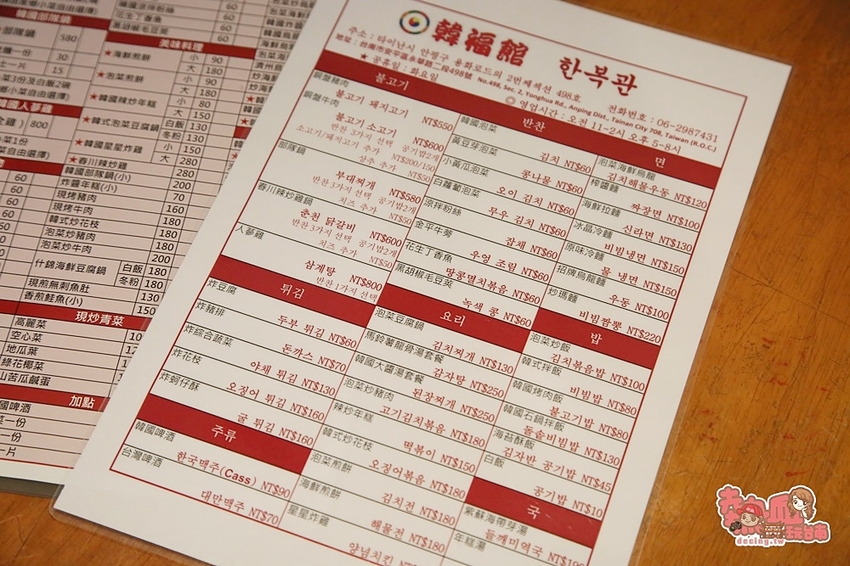 韓福館 한복관
주소 : 타이난시 안핑구 용화로드의 2번째섹션 498호
地址 : 台南市安平區永華路二段498號 No.498, Sec. 2, Yonghua Rd., Anping Dist., Tainan City 708, Taiwan (R.O.C.)
전화번호 : 06-2987431
공휴일 : 화요일
영업시간 : 오전 11~2시 오후 5~8시
불고기
銅盤豬肉
불고기 돼지고기 NT$550
銅盤牛肉
불고기 소고기 NT$600
반찬 3가지 선택 공기밥2개
소고기/돼지고기 추가 NT$200/150
상추 추가 NT$50
部隊鍋
부대찌개 NT$580
반찬 3가지 선택 공기밥2개
치즈 추가 NT$50
春川辣炒雞鍋
춘천 닭갈비 NT$600
반찬 3가지 선택 공기밥2개
치즈 추가 NT$50
人蔘雞
삼계탕 NT$800
반찬 1가지 선택
튀김
炸豆腐
두부 튀김 NT$60
炸豬排
돈까스 NT$70
炸綜合蔬菜
야채 튀김 NT$130
炸花枝
오징어 튀김 NT$160
炸蚵仔酥
굴 튀김 NT$160
주류
韓國啤酒
한국맥주(Cass) NT$90
台灣啤酒
대만맥주 NT$70
반찬
韓國泡菜
김치 NT$60
黃豆芽泡菜
콩나물 NT$60
小黃瓜泡菜
오이 김치 NT$60
白蘿蔔泡菜
무우 김치 NT$60
涼拌粉絲
잡채 NT$60
金平牛蒡
우엉 조림 NT$60
花生丁香魚
땅콩멸치볶음 NT$60
黑胡椒毛豆莢
녹색 콩 NT$60
요리
泡菜豆腐鍋
김치찌개 NT$130
馬鈴薯龍骨湯套餐
감자탕 NT$250
韓國大醬湯套餐
된장찌개 NT$250
泡菜炒豬肉
고기김치볶음 NT$180
辣炒年糕
떡볶이 NT$150
韓式炒花枝
오징어볶음 NT$180
泡菜煎餅
김치전 NT$180
海鮮煎餅
해물전 NT$180
星星炸雞
양념치킨
면
泡菜海鮮烏龍
김치해물우동 NT$120
榨醬麵
짜장면 NT$100
海鮮拉麵
신라면 NT$130
冰晶冷麵
비빔냉면 NT$150
原味冷麵
물 냉면 NT$150
招牌烏龍麵
우동 NT$100
炒瑪麵
비빔짬뽕 NT$220
밥
泡菜炒飯
김치볶음밥 NT$100
韓式拌飯
비빔밥 NT$80
韓國烤肉飯
불고기밥 NT$80
韓國石鍋拌飯
돌솥비빔밥 NT$130
海苔酥飯
김자반 공기밥 NT$45
白飯
공기밥 NT$10
국
紫蘇海帶芽湯
들깨미역국
年糕湯
韓國部隊鍋
美味料理
★海鮮煎餅
★泡菜煎餅
★韓國辣炒年糕
★韓式泡菜豆腐鍋
★韓國星星炸雞
★春川辣炒雞
韓國部隊鍋(小)
炸醬年糕(小)
現烤豬肉
現烤牛肉
韓式炒花枝
泡菜炒豬肉
泡菜炒牛肉
什錦海鮮豆腐鍋
現煎無刺魚肚
香煎鮭魚(小)
現炒青菜
高麗菜
空心菜
地瓜葉
綠花椰菜
山苦瓜鹹蛋
加點
熱血玩台南
decing.tw